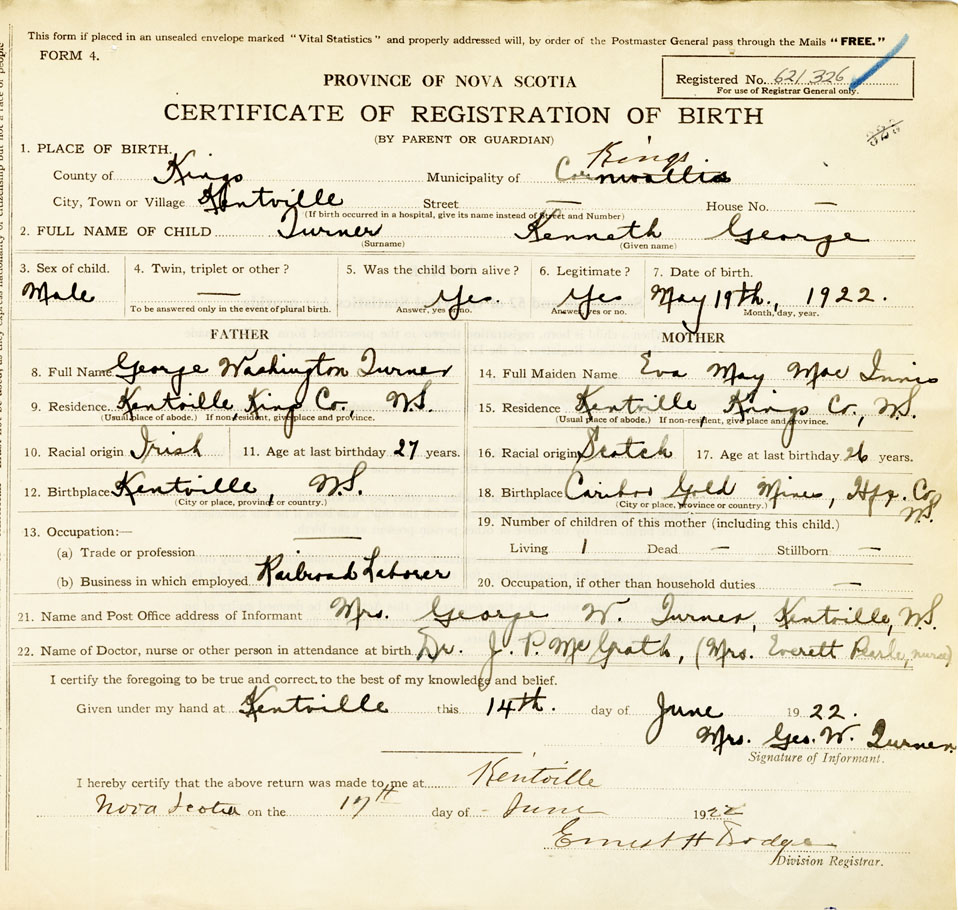 This form if placed in an unsealed envelope marked "Vital Statistics" and properly addressed will, by order of the Postmaster General pass through the Mails "FREE."
FORM 4.
PROVINCE OF NOVA SCOTIA
Registered No. 621326
For use of Registrar General only.
CERTIFICATE OF REGISTRATION OF BIRTH
(BY PARENT OR GUARDIAN)
1. PLACE OF BIRTH.
Kings
County of Kings Municipality of Cornwallis
City, Town or Village Kentville Street — House No. —
(If birth occurred in a hospital, give its name instead of Street and Number)
2. FULL NAME OF CHILD Turner Kenneth George
(Surname) (Given name)
3. Sex of child. 4. Twin, triplet or other? 5. Was the child born alive? 6. Legitimate? 7. Date of birth.
Male — Yes. Yes May 19th., 1922.
To be answered only in the event of plural birth. Answer, yes or no. Answer, yes or no. Month, day, year.
FATHER MOTHER
8. Full Name George Washington Turner 14. Full Maiden Name Eva May Mac Innis
9. Residence. Kentville King Co., N.S. 15. Residence Kentville, Kings Co., N.S.
(Usual place of abode.) If non-resident, give place and province. (Usual place of abode.) If non-resident, give place and province.
10. Racial origin Irish 11. Age at last birthday 27 years. 16. Racial origin Scotch 17. Age at last birthday 26 years.
12. Birthplace Kentville, N.S. 18. Birthplace Cariboo Gold Mines, Hfx. Co. N.S.
(City or place, province or country.) (City or place, province or country.)
13. Occupation:— — 19. Number of children of this mother (including this child.)
(a) Trade or profession Living 1 Dead — Stillborn —
(b) Business in which employed Railroad Laborer 20. Occupation, if other than household duties —
21. Name and Post Office address of Informant Mrs. George W. Turner, Kentville, N.S.
22. Name of Doctor, nurse or other person in attendance at birth. Dr. J. P. McGrath, (Mrs. Everett nurse)
I certify the foregoing to be true and correct to the best of my knowledge and belief.
Given under my hand at Kentville this 14th. day of June 1922.
Mrs. Geo. W. Turner
Signature of Informant.
I hereby certify that the above return was made to me at Kentville
Nova Scotia on the 17th day of June 1922
Ernest H Dodge
Division Registrar.